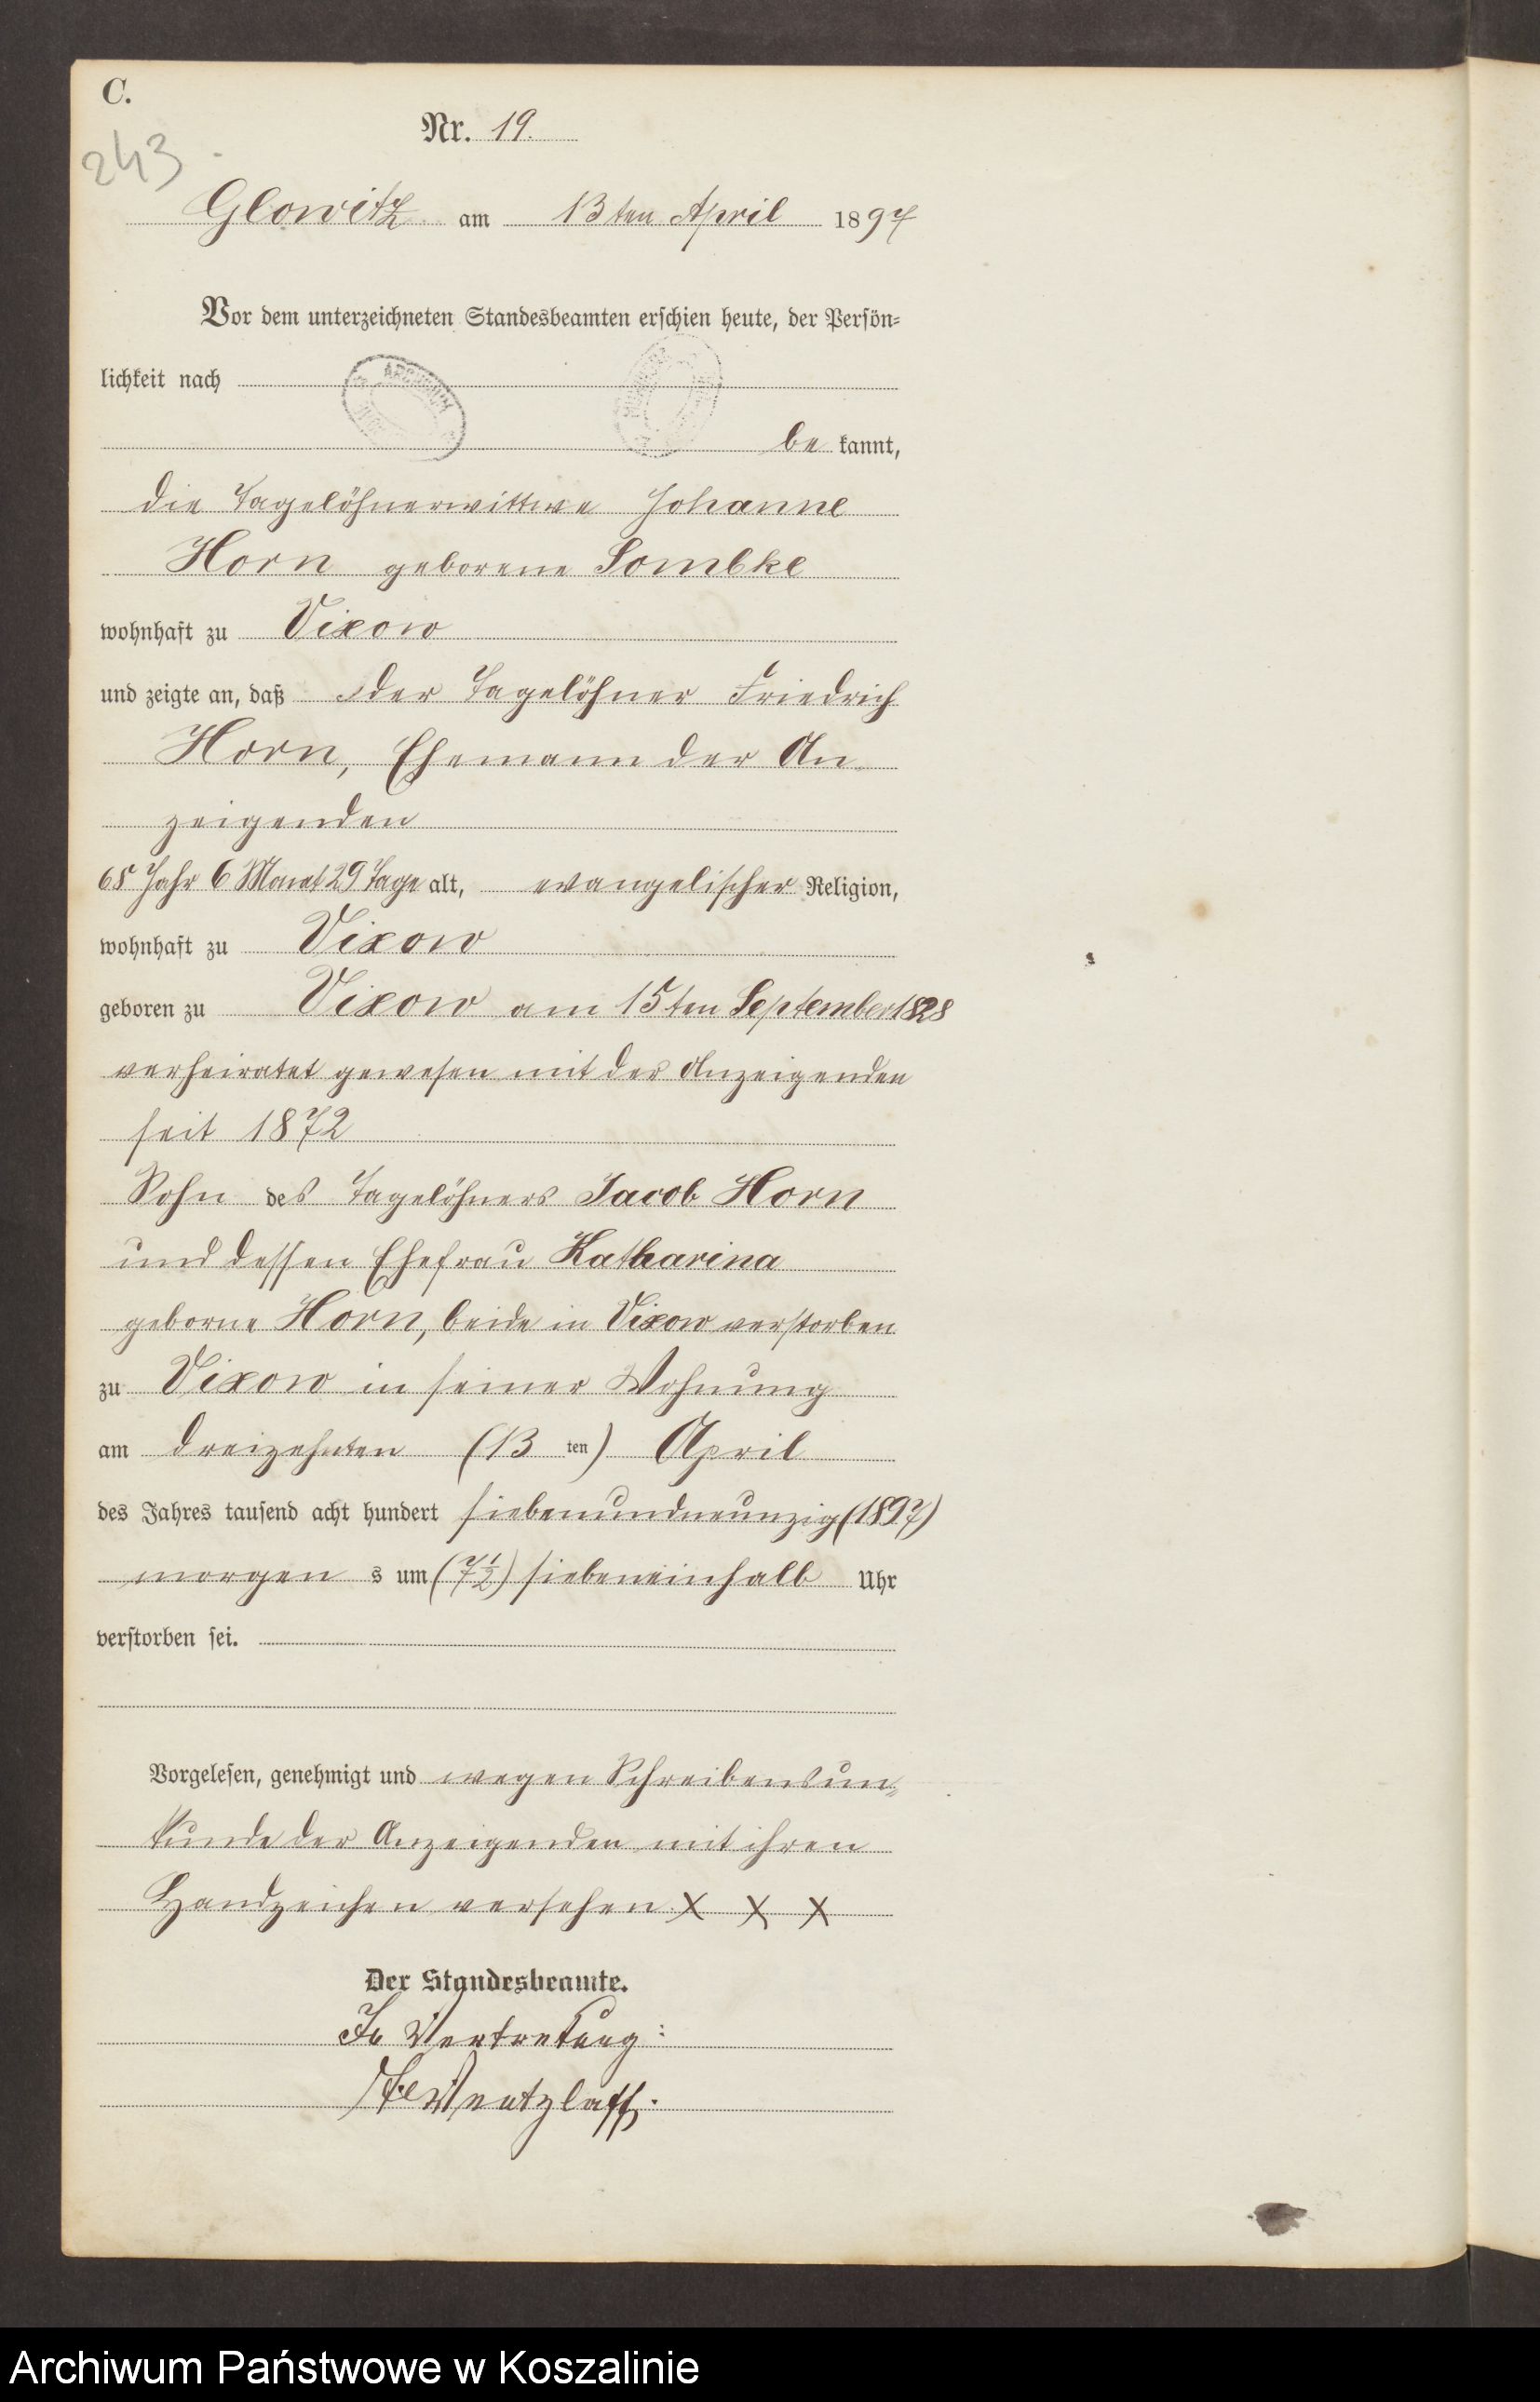 C.
243
Nr. 19.
Glowitz am 13ten April 1897
Vor dem unterzeichneten Standesbeamten erschien heute, der Persön-
lichkeit nach
ARCHIWUM
be kannt,
die Tagelöhnerwittwe Johanne
Horn geborene Sombke
wohnhaft zu Vixow
und zeigte an, daß der Tagelöhner Friedrich
Horn, Ehemann der An-
zeigenden
68 Jahr 6 Monat 29 Tage alt, evangelischer Religion,
wohnhaft zu Vixow
geboren zu Vixow am 15ten September 1828
verheiratet gewesen mit der Anzeigenden
seit 1872
Sohn des Tagelöhners Jacob Horn
und dessen Ehefrau Katharina
geborne Horn, beide in Vixow verstorben
zu Vixow in seiner Wohnung
am dreizehnten (13 ten) April
des Jahres tausend acht hundert siebenundneunzig (1897)
morgen s um (7½) siebeneinhalb Uhr
verstorben sei.
Vorgelesen, genehmigt und wegen Schreibensun-
kunde der Anzeigenden mit ihren
Handzeichen versehen X X X
Der Standesbeamte.
In Vertretung:
Wentzlaff.
Archiwum Państwowe w Koszalinie